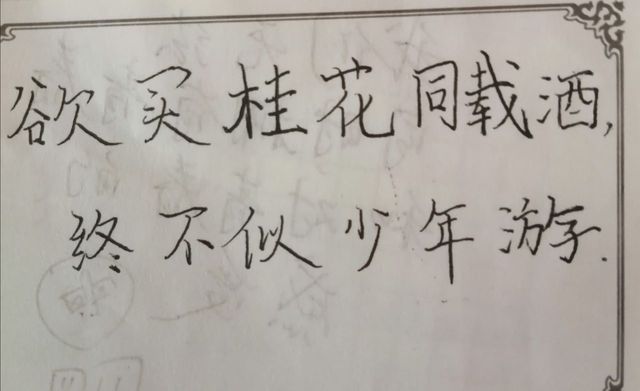 欲买桂花同载酒,
终不似少年游.